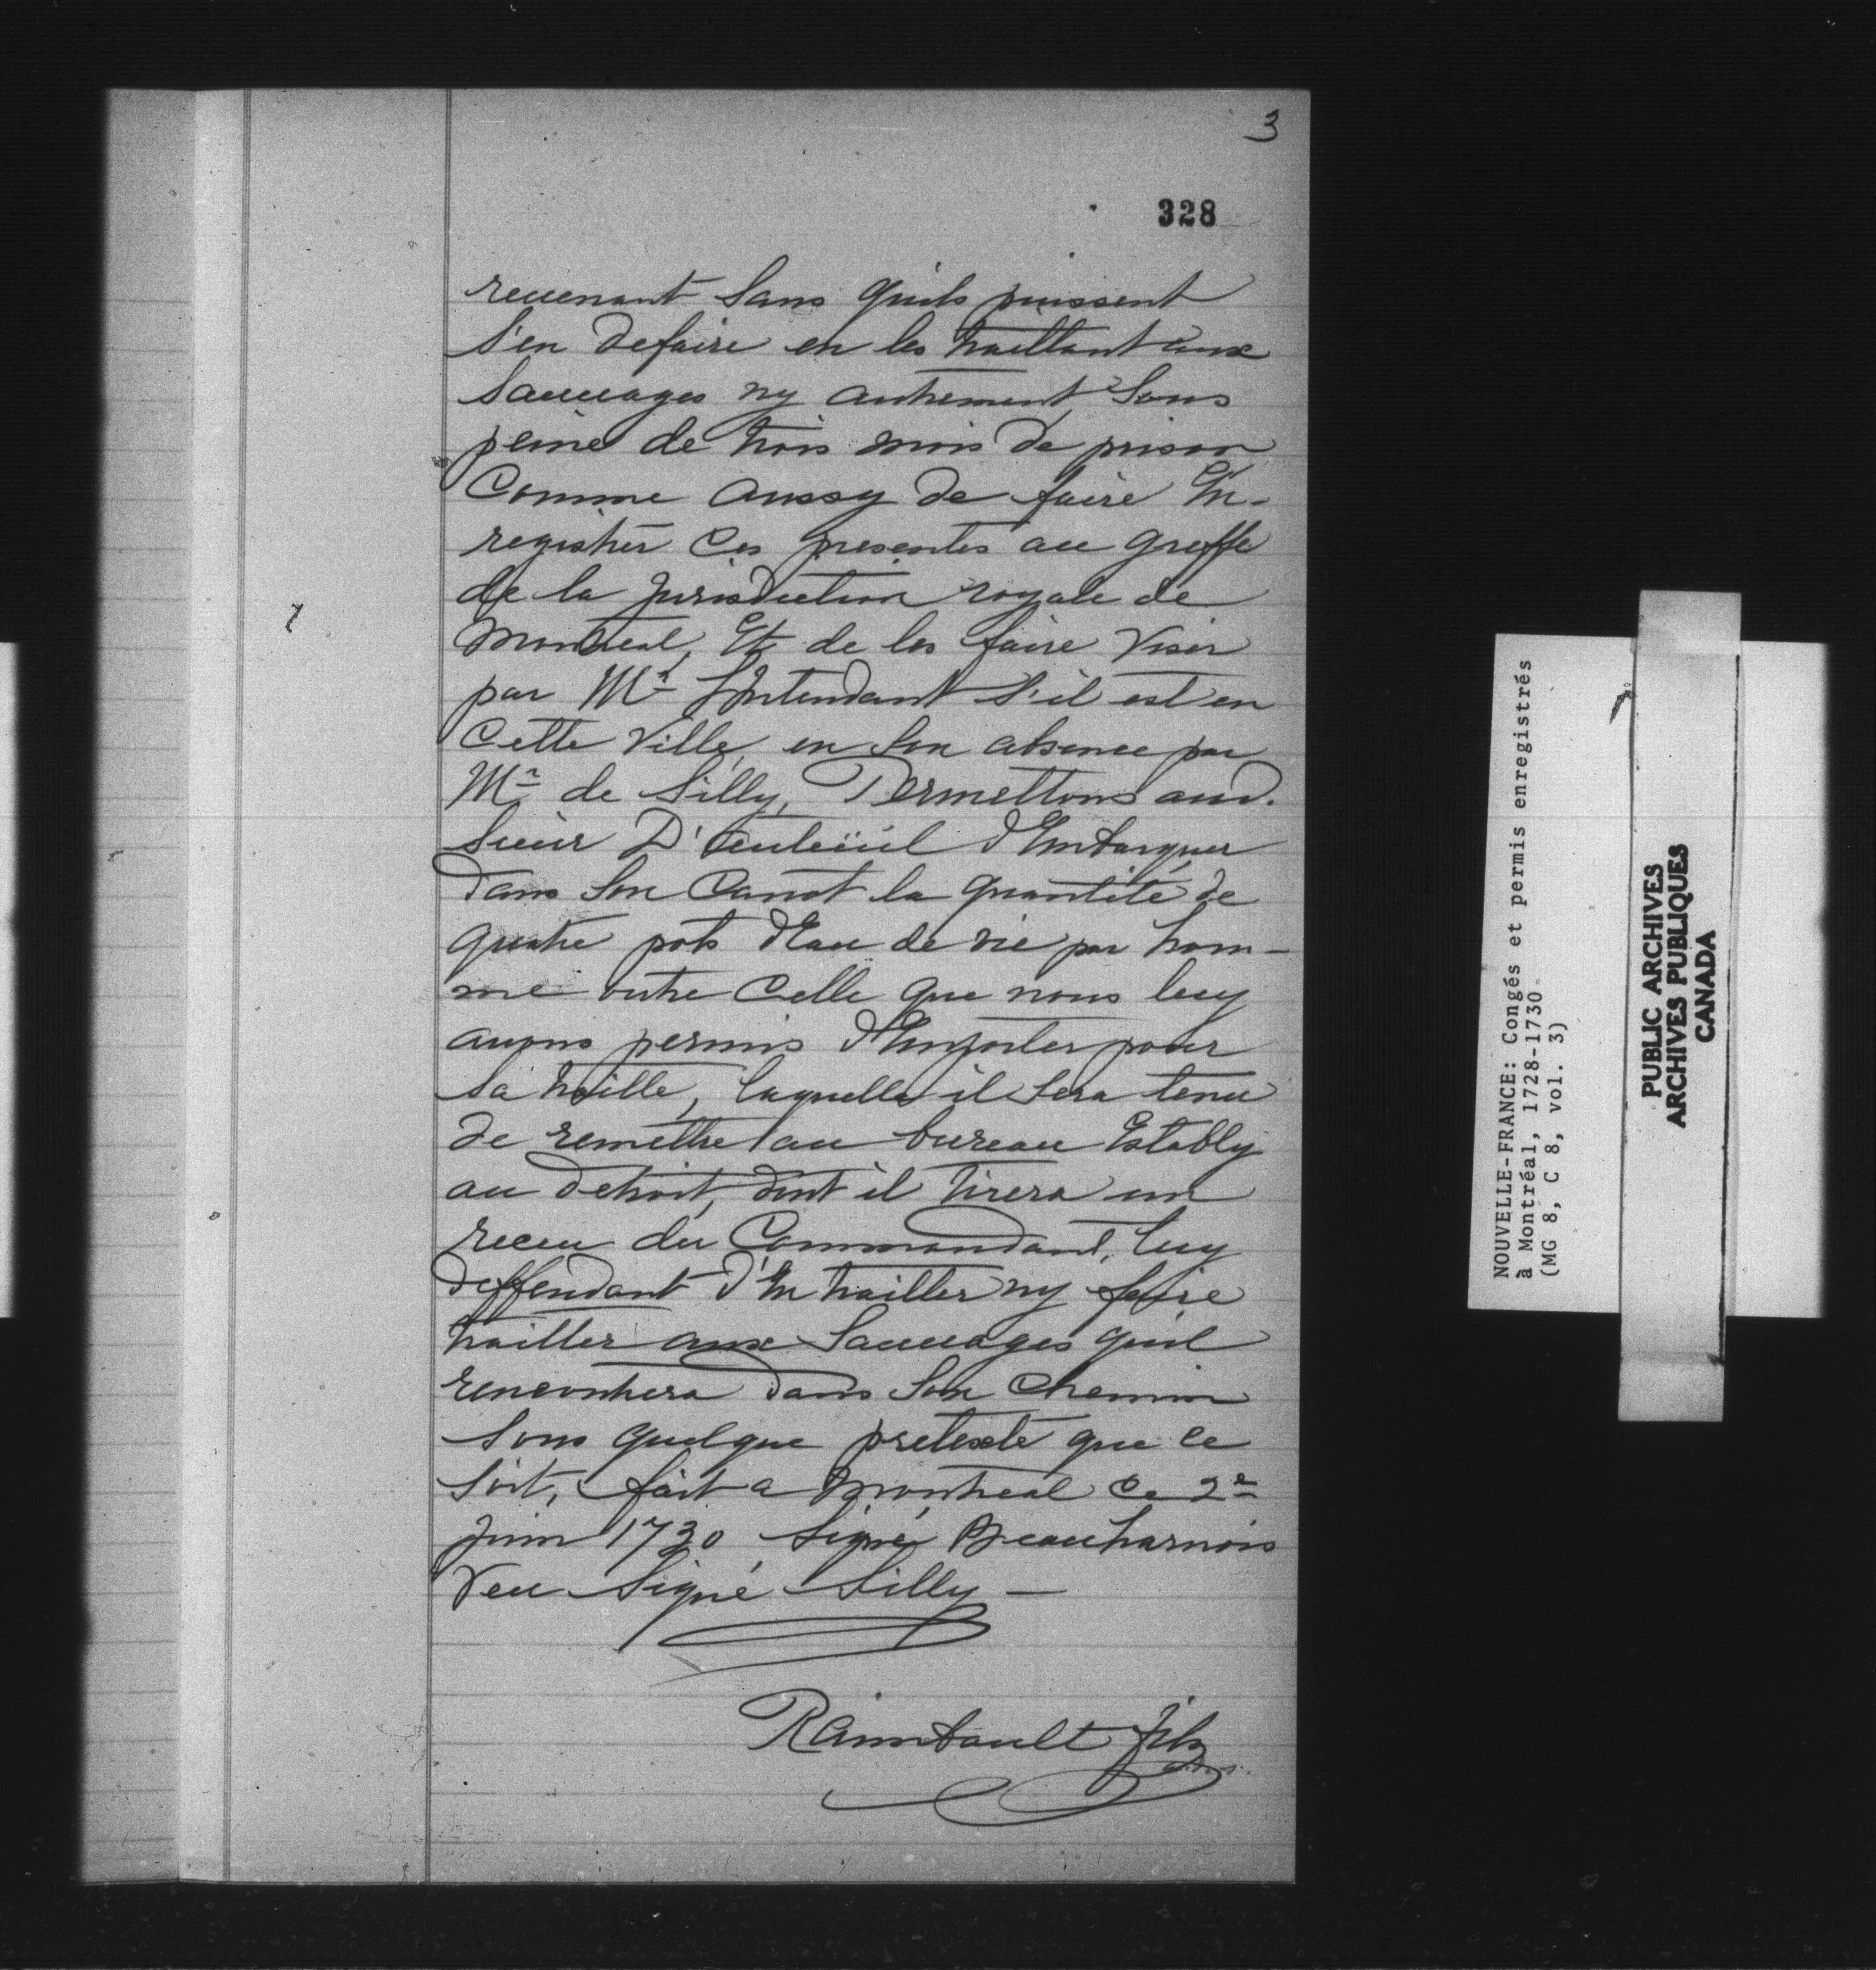 3
328
reuenant Sans quils puissent
S'en defaire en les traittant aux
Sauuages ny autrement, Sous
peine de trois mois de prison
Comme aussy de faire En-
registrer Ces presentes au greffe
de la Jurisdiction royale de
Montreal, Et de les faire Viser
par Mr. L'Intendant S'il est en
Cette Ville, en Son absence par
Mr. de Silly, Permettons aud.
Sieur D'auteüil d'Embarquer
dans Son Canot la quantité de
quatre pots d'Eau de vie par hom-
me outre Celle que nous luy
auons permis d'Emporter pour
sa traitte, laquelle il Sera tenu
de remettre au bureau Estably
au detroit, dont il tirera un
receu du Commandant, luy
deffendant d'En traitter ny faire
traitter aux Sauuages quil
rencontrera dans Son Chemin
Sous quelque pretexte que ce
Soit, fait a Montreal Ce 2e
Juin 1730 Signé Beauharnois
Veu Signé Silly —
Raimbault fils
NOUVELLE-FRANCE: Congés et permis enregistrés
à Montréal, 1728-1730
(MG 8, C 8, vol. 3)
PUBLIC ARCHIVES
ARCHIVES PUBLIQUES
CANADA